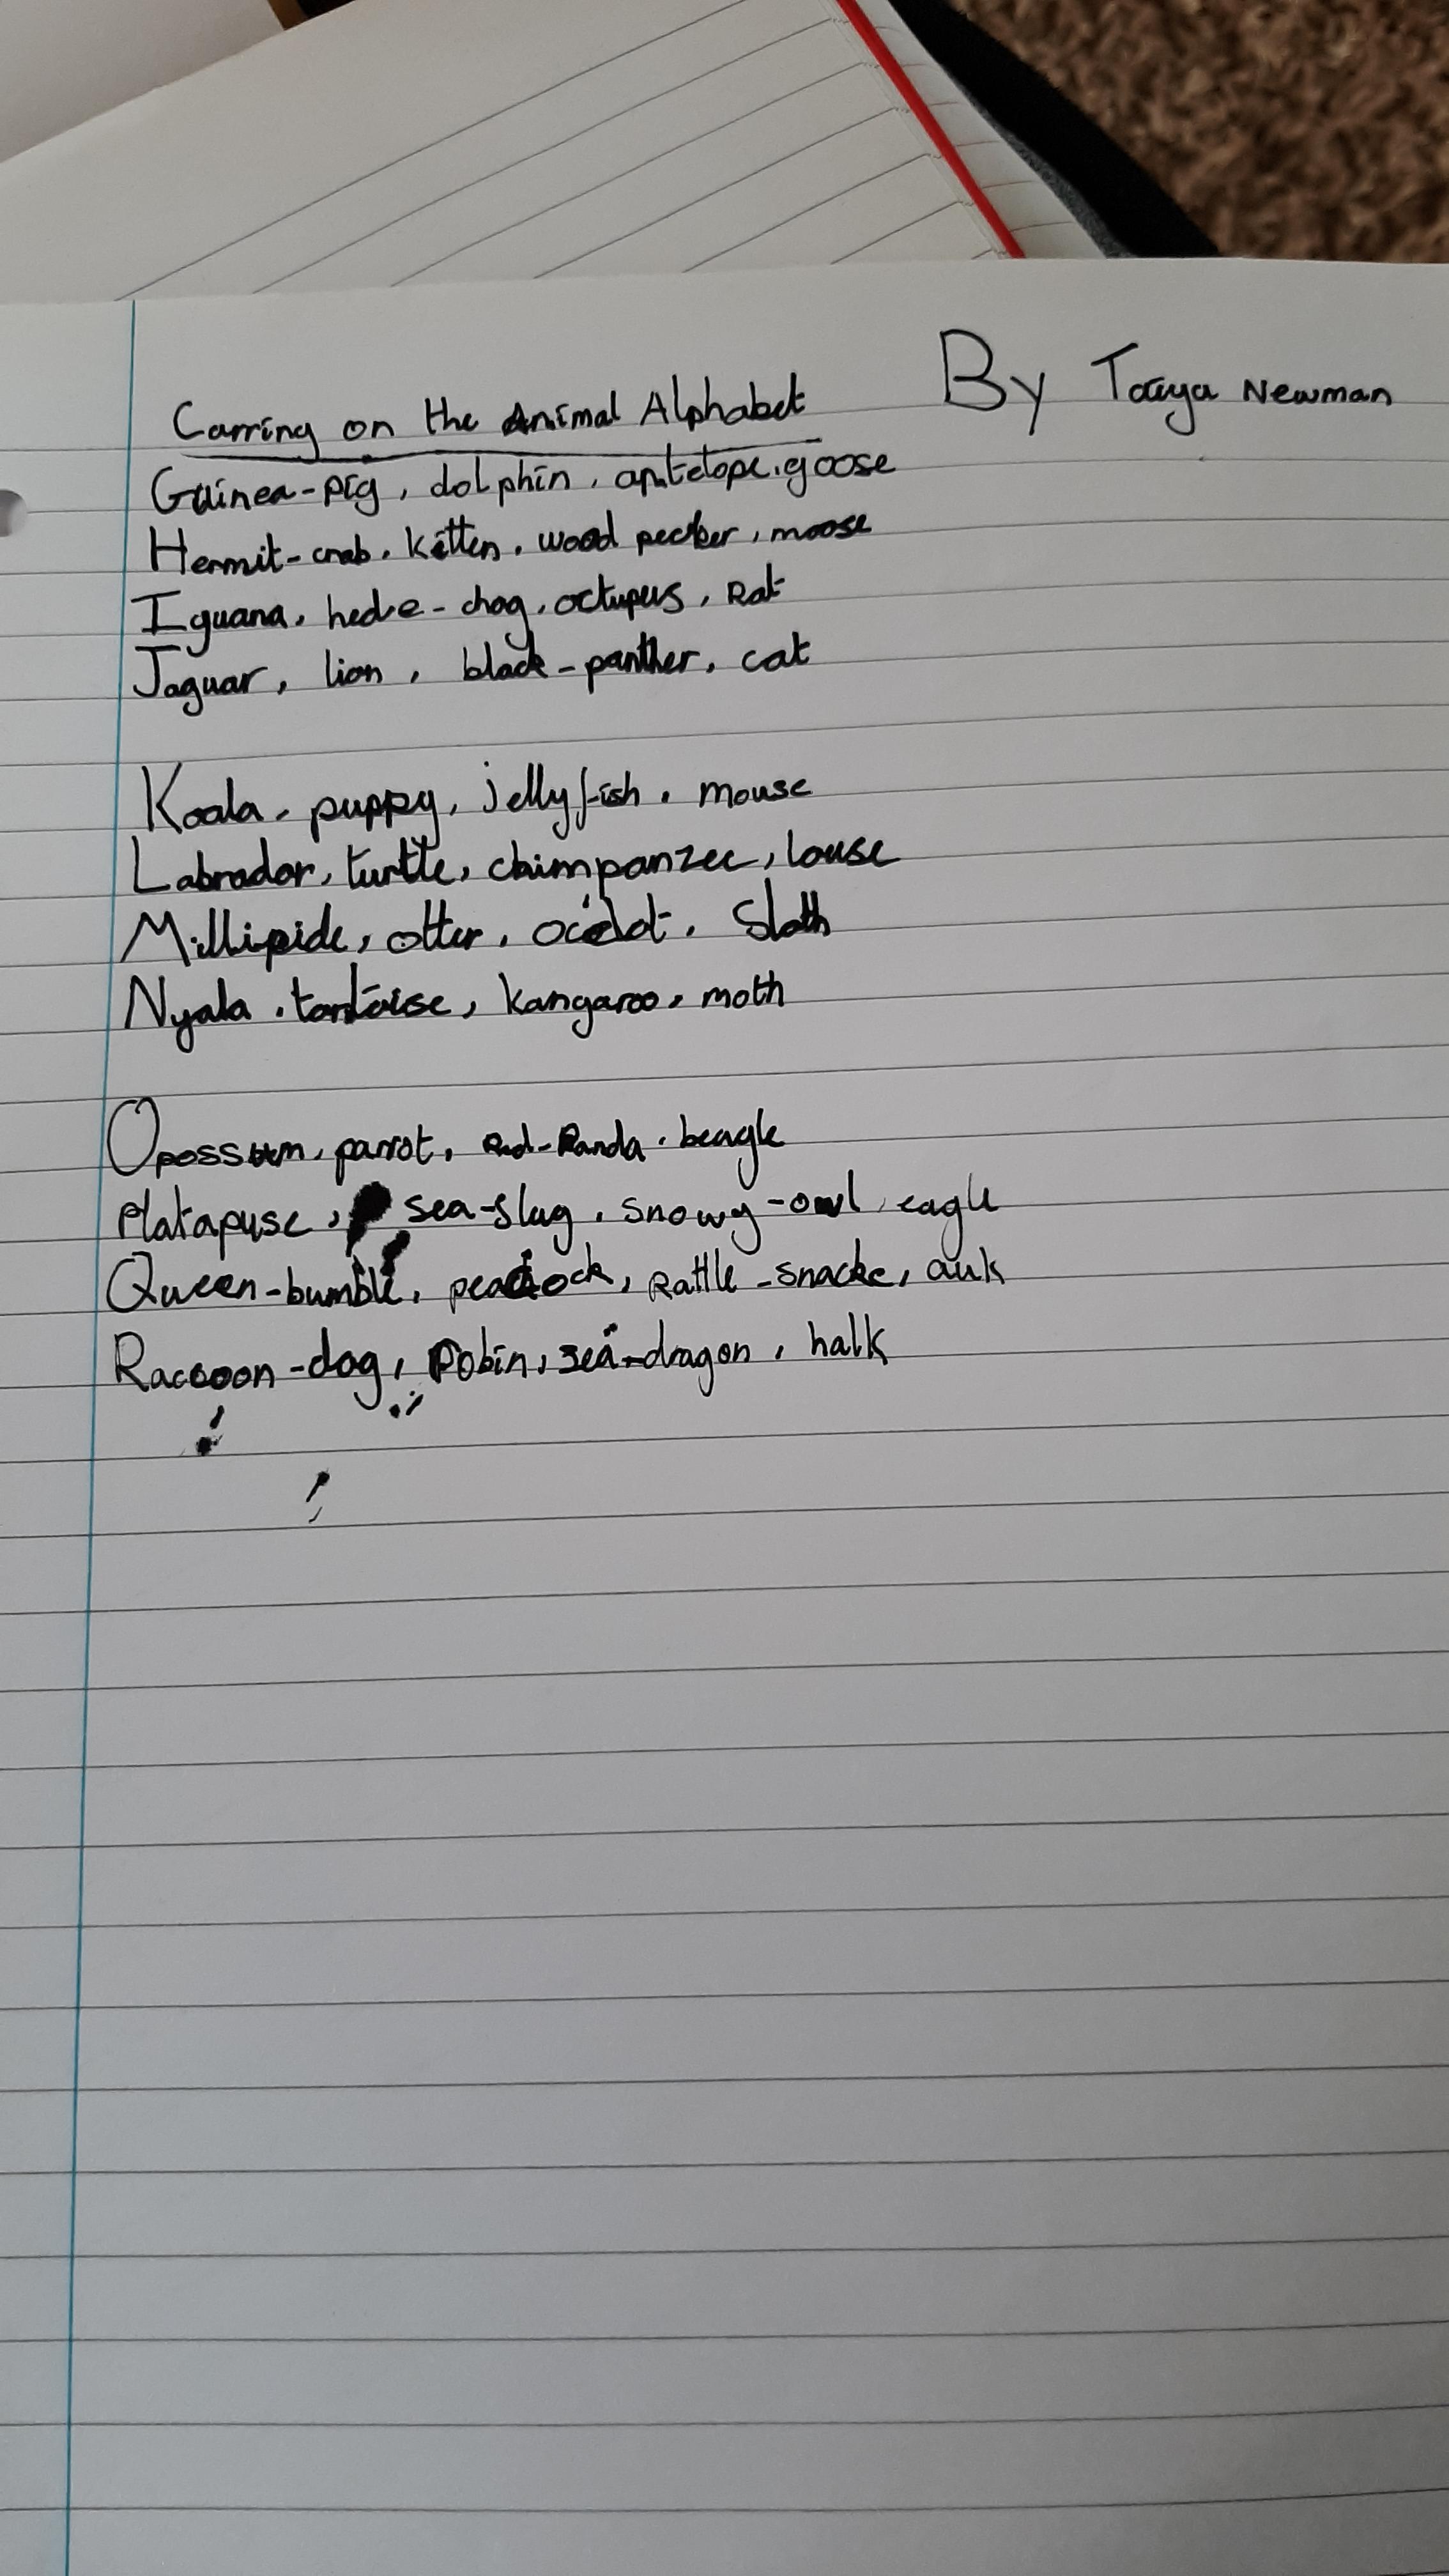 By Taiya Newman
Carring on the Animal Alphabet
Guinea-pig, dolphin, antelope, goose
Hermit-crab, kitten, wood pecker, moose
Iguana, hed e-chog, octupus, Rat
Jaguar, lion, black-panther, cat
Koala, puppy, jellyfish, mouse
Labrador, turtle, chimpanzee, louse
Millipide, otter, ocelot, Sloth
Nyala, tortoise, kangaroo, moth
Opossum, parrot, Red-Panda, beagle
Platapuse, sea-slug, snowy-owl, eagle
Queen-bumble, peacock, Rattle-snacke, auk
Raccoon-dog, Robin, sea-dragon, halk